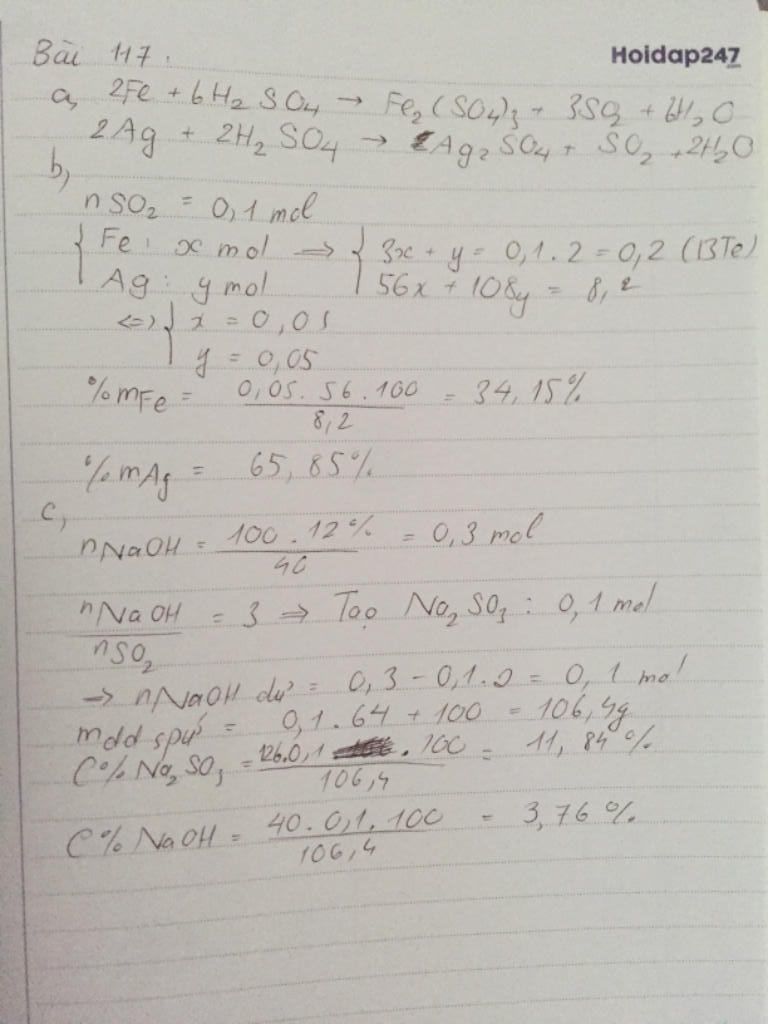 Bài 117.
Hoidap247
a, 2Fe + 6H₂SO₄ → Fe₂(SO₄)₃ + 3SO₂ + 6H₂O
2Ag + 2H₂SO₄ → Ag₂SO₄ + SO₂ + 2H₂O
b,
nSO₂ = 0,1 mol
{ Fe: x mol ⇒ { 3x + y = 0,1.2 = 0,2 (BTe)
Ag: y mol 56x + 108y = 8,2
⇔ { x = 0,05
y = 0,05
%mFe = 0,05.56.100 / 8,2 = 34,15%
%mAg = 65,85%
c,
nNaOH = 100.12% / 40 = 0,3 mol
nNaOH / nSO₂ = 3 ⇒ Tạo Na₂SO₃: 0,1 mol
→ nNaOH dư = 0,3 - 0,1.2 = 0,1 mol
mdd spứ = 0,1.64 + 100 = 106,4g
C%Na₂SO₃ = 126.0,1.100 / 106,4 = 11,84%
C%NaOH = 40.0,1.100 / 106,4 = 3,76%